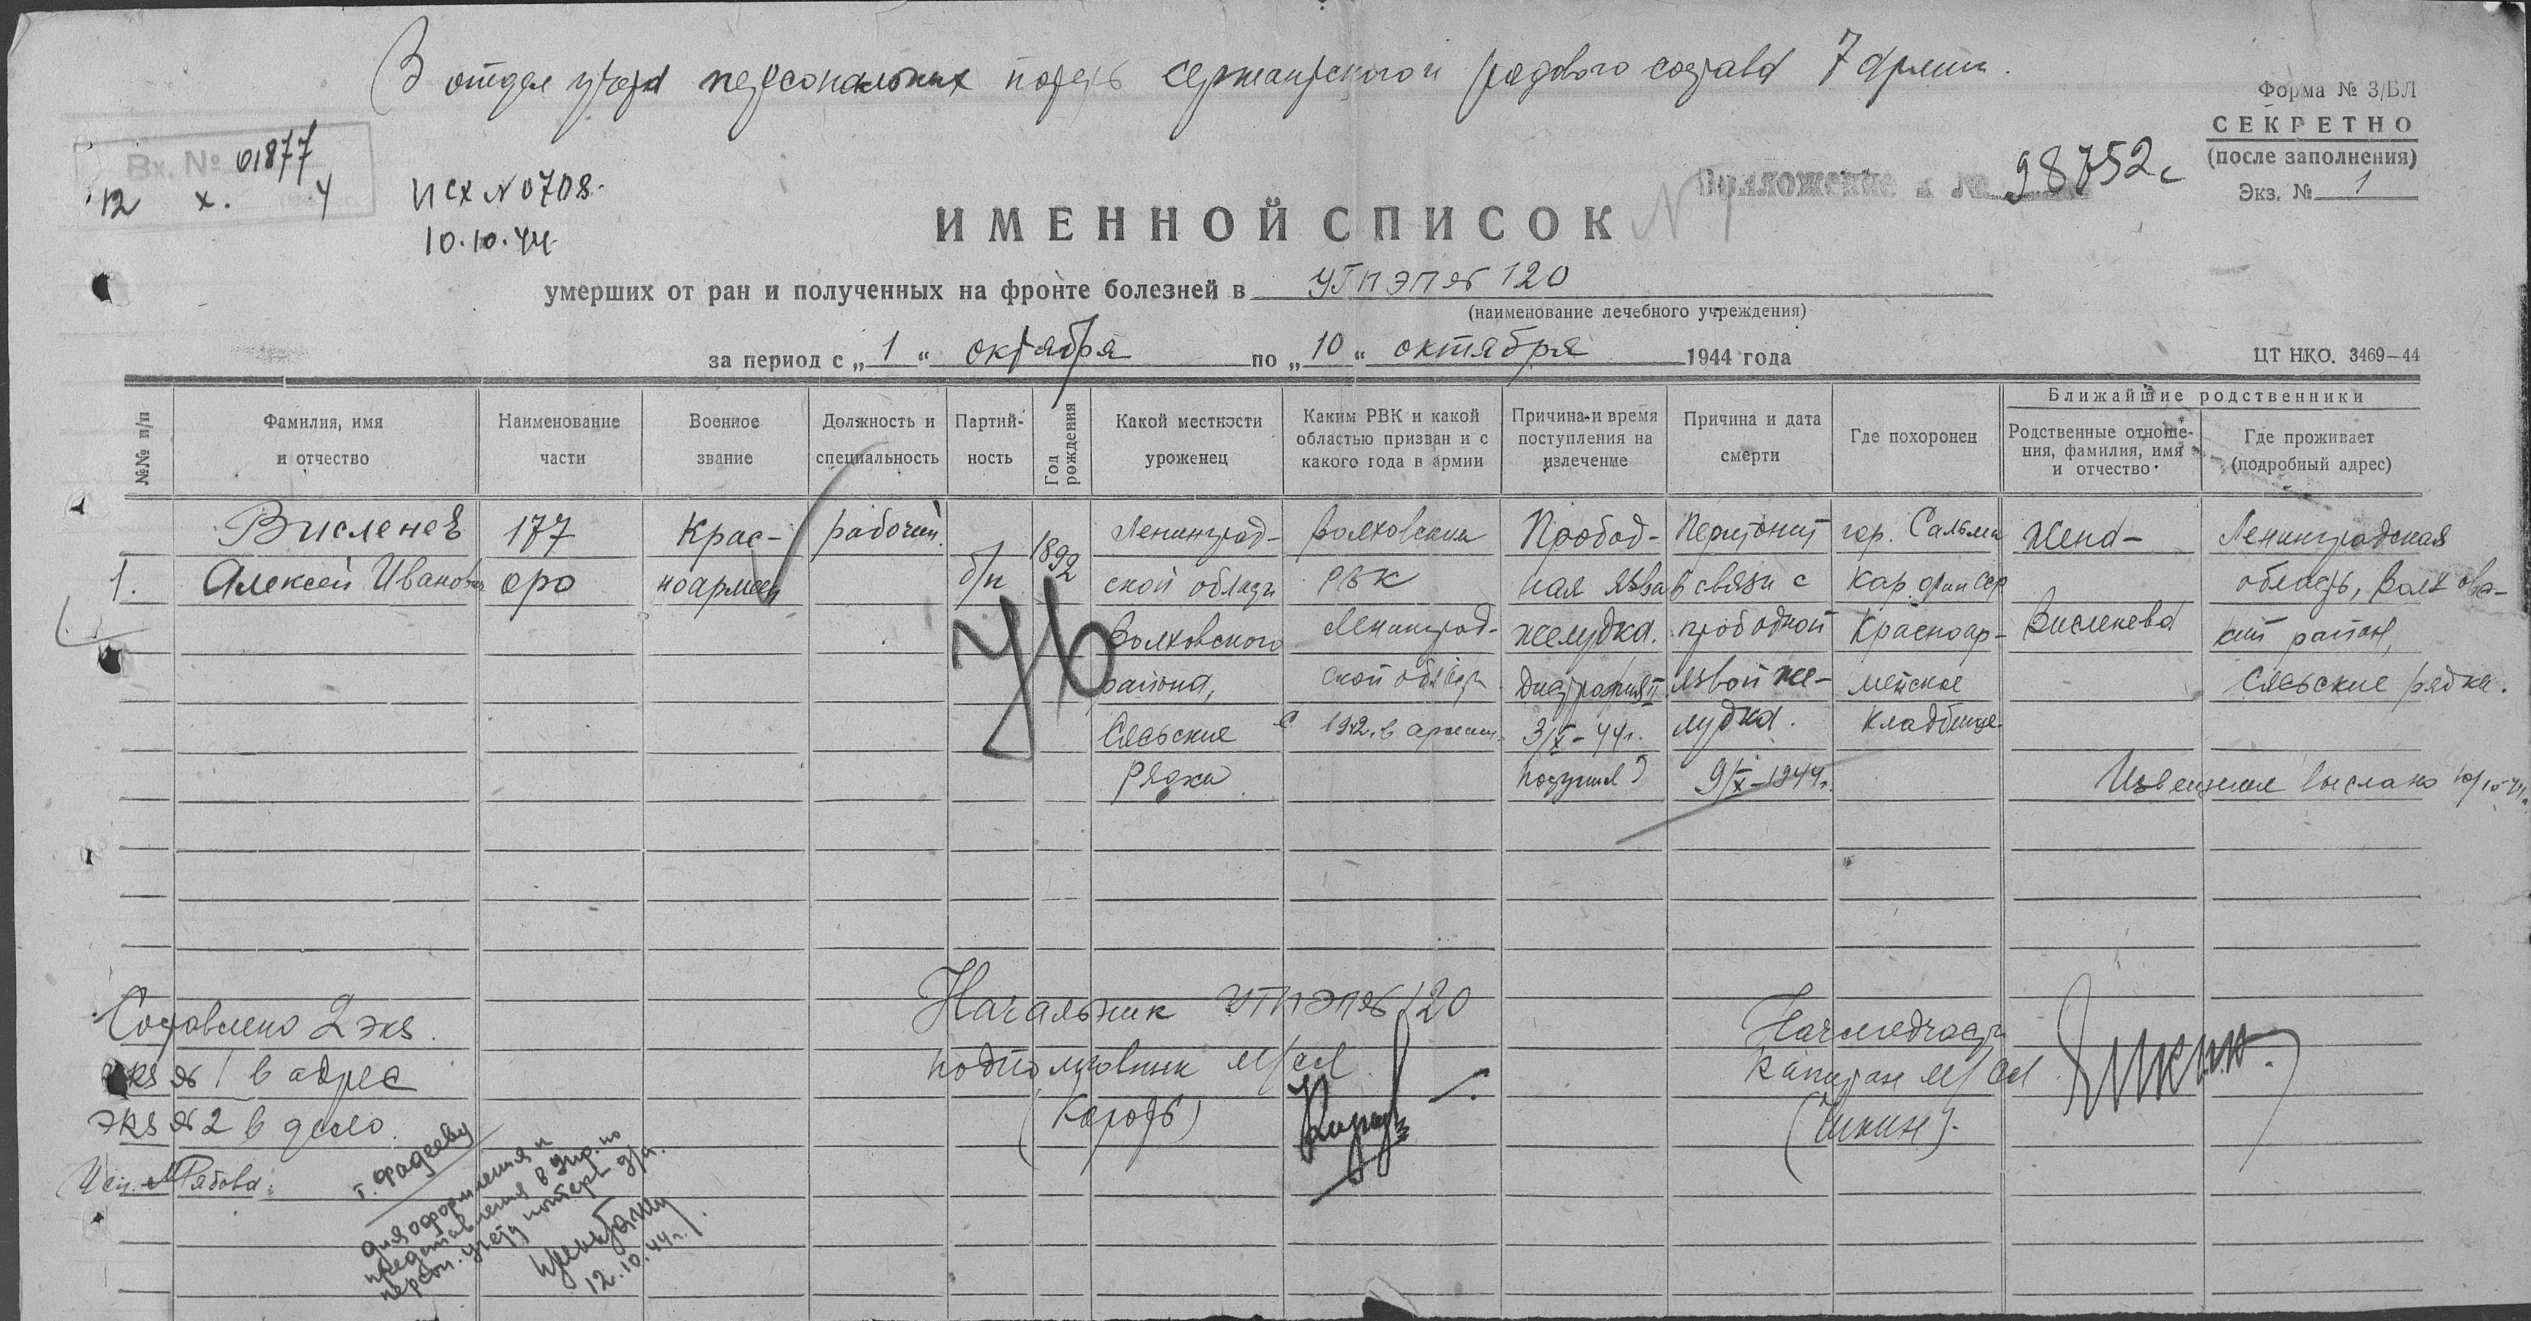 В отдел учета персональных потерь сержантского и рядового состава 7 армии.
Форма № 3/БЛ
СЕКРЕТНО
(после заполнения)
Экз. № 1
Вх. № 01877
12 X. 4
Исх N 0708.
10.10.44.
Приложение к № 98752с
ИМЕННОЙ СПИСОК N 1
умерших от ран и полученных на фронте болезней в УГПЭП № 120
(наименование лечебного учреждения)
за период с „ 1 “ октября по „ 10 “ октября 1944 года
ЦТ НКО. 3469—44
№№ п/п
Фамилия, имя
и отчество
Наименование
части
Военное
звание
Должность и
специальность
Партий-
ность
Год
рождения
Какой местности
уроженец
Каким РВК и какой
областью призван и с
какого года в армии
Причина и время
поступления на
излечение
Причина и дата
смерти
Где похоронен
Ближайшие родственники
Родственные отноше-
ния, фамилия, имя
и отчество
Где проживает
(подробный адрес)
1.
Висленев
Алексей Иванович
177
оро
Крас-
ноармеец
рабочий.
б/п
1892
Ленинград-
ской област
Волховского
района,
Сясьские
Рядки
Волховским
РВК
Ленинград-
ской области
с 1942 в армии.
Пробод-
ная язва
желудка.
Дистрофия II
3/X-44г.
поступил
Перитонит
в связи с
прободной
язвой же-
лудка.
9/X-1944г.
гор. Сальми
Кар. фин ССР
Красноар-
мейское
кладбище
Жена-
Висленева
Ленинградская
область, Волховс-
кий район,
Сясьские рядки.
Извещение выслано 10/10-44г.
Уб
Составлено 2 экз.
экз № 1 в адрес
экз № 2 в дело.
Исп. Рябова.
Начальник УГПЭП № 120
подполковник м/сл
(Король)
Начмедчасти
Капитан м/сл
(Чикин).
т. Фадееву
для оформления и
представления в Упр. по
персон. учету потерь д/а.
12.10.44г.